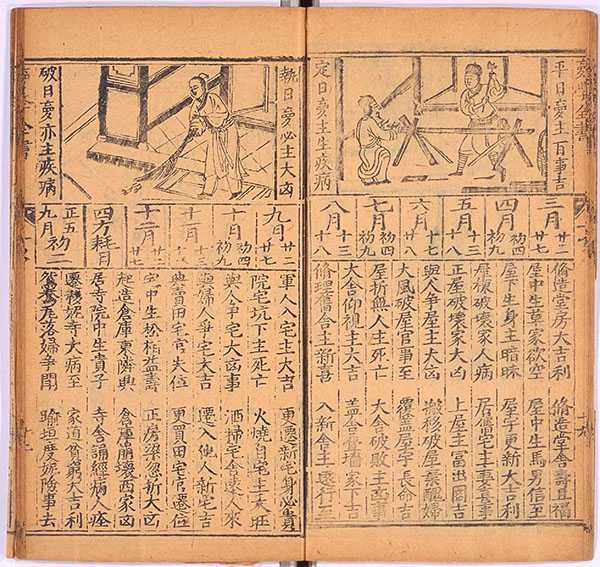 平日夢主百事吉
定日夢主生疾病
三月 廿二 廿七
四月 初四 初九
五月 十三 十八
六月
七月 初四 初九
八月 十三 十八
脩造堂房大吉利 脩造堂舍壽且福
屋中生草家欲空 屋中生馬男信至
屋下生身主暗昧 屋宇更新大吉利
屋棟破壞家人病 居舊宅主妻喪事
正屋破壞家大凶 上屋主富出圖吉
與人爭屋主大凶 搬移破屋娶醜婦
大風破屋官事至 覆蓋屋宇長命吉
屋折無人主死亡 大舍破敗主凶事
大舍仰視主大吉 蓋舍疊墻家下吉
脩理舊舍主新喜 入新舍主遠行
執日夢必主大凶
破日夢亦主疾病
九月 廿二 廿七
十月 初四 初九
十一月 十三 十八
十二月 廿二 廿七
四方耗日
正五九月 初二
軍人入宅主大吉 更遷新宅身必貴
院宅坑下主死亡 火燒自宅主大旺
與人爭宅大凶事 洒掃宅舍遠人來
與婦人爭宅大吉 遷入他人新宅吉
典賣田宅官失位 更買田宅官遷位
宅中生松柏益壽 正房梁忽折大凶
起造倉庫東隣興 倉庫崩壞西家凶
居寺院中生貴子 寺舍誦經病人痊
遷移妮寺大病至 家道貧窮大吉利
鴛鴦落婦爭鬧 踰垣度險事去